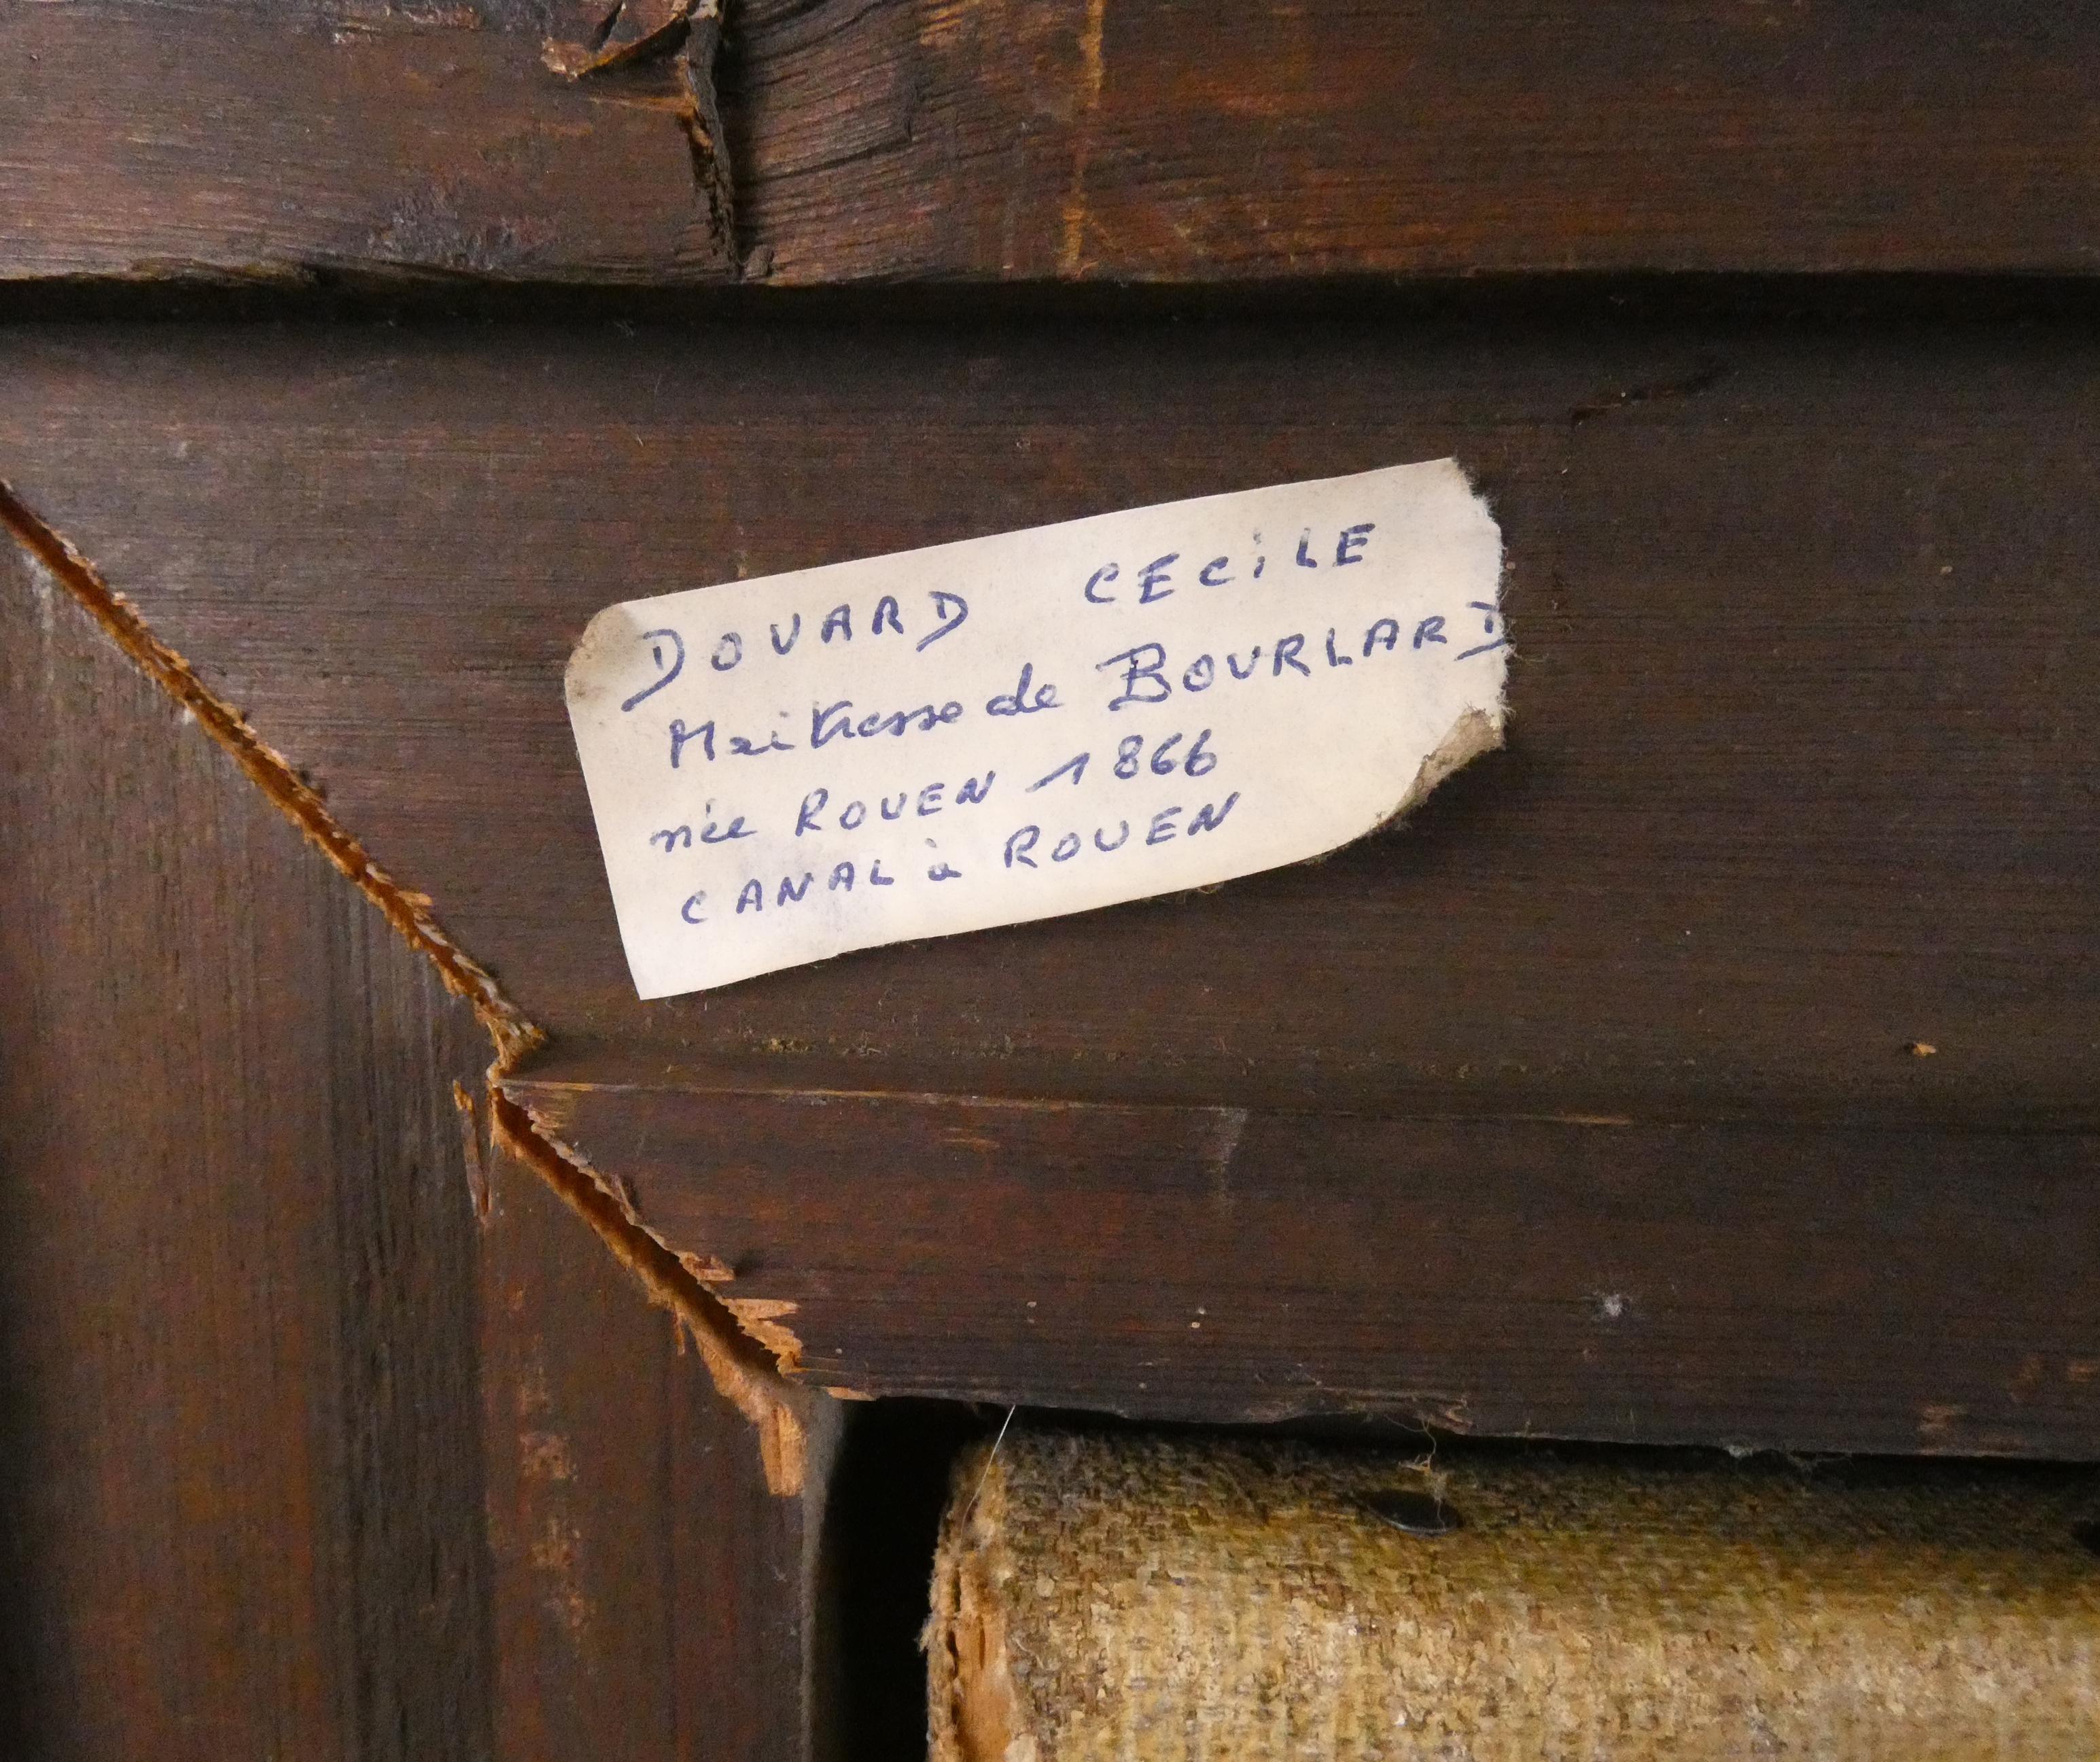 DOUARD CECiLE
Maitresse de BOURLARD
née ROUEN 1866
CANAL à ROUEN